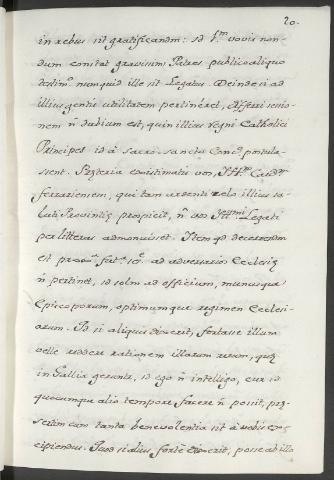 20.
in rebus sit gratificandum: sed vovis non-
dum constat gravissimi Patres publico aliquo
numquid ille sit Legatus. Deinde si ad
illius gentis utilitatem pertineret, Asserri
nem ñ dubium est, quin illius regni Catholici
Principes id à sacro sancto Conc.º postula-
ssent. Pręterea existimatis von, Card.
ferrariensem, qui tam ardenti zelo illius sa-
luti Provintię prospicit, ñ Legati
per litteras admonuisset. Item qd decernendum
est ad adversarios Ecclesię
ñ pertinet, sed solm ad officium, munusque
Episcoporum, optimumque regimen Ecclesi-
arum. Id si aliquis dixerit, fortasse illum
velle reddere rationem illarum rerum, quę
in Gallia gerunt, id ego ñ intelligo, cur id
quocumque alio tempore facere ñ possit, prę-
sertim cum tanta benevolentia sit à vobis ex-
cipiendus. Quod si alius forte dixerit, posse ab illo